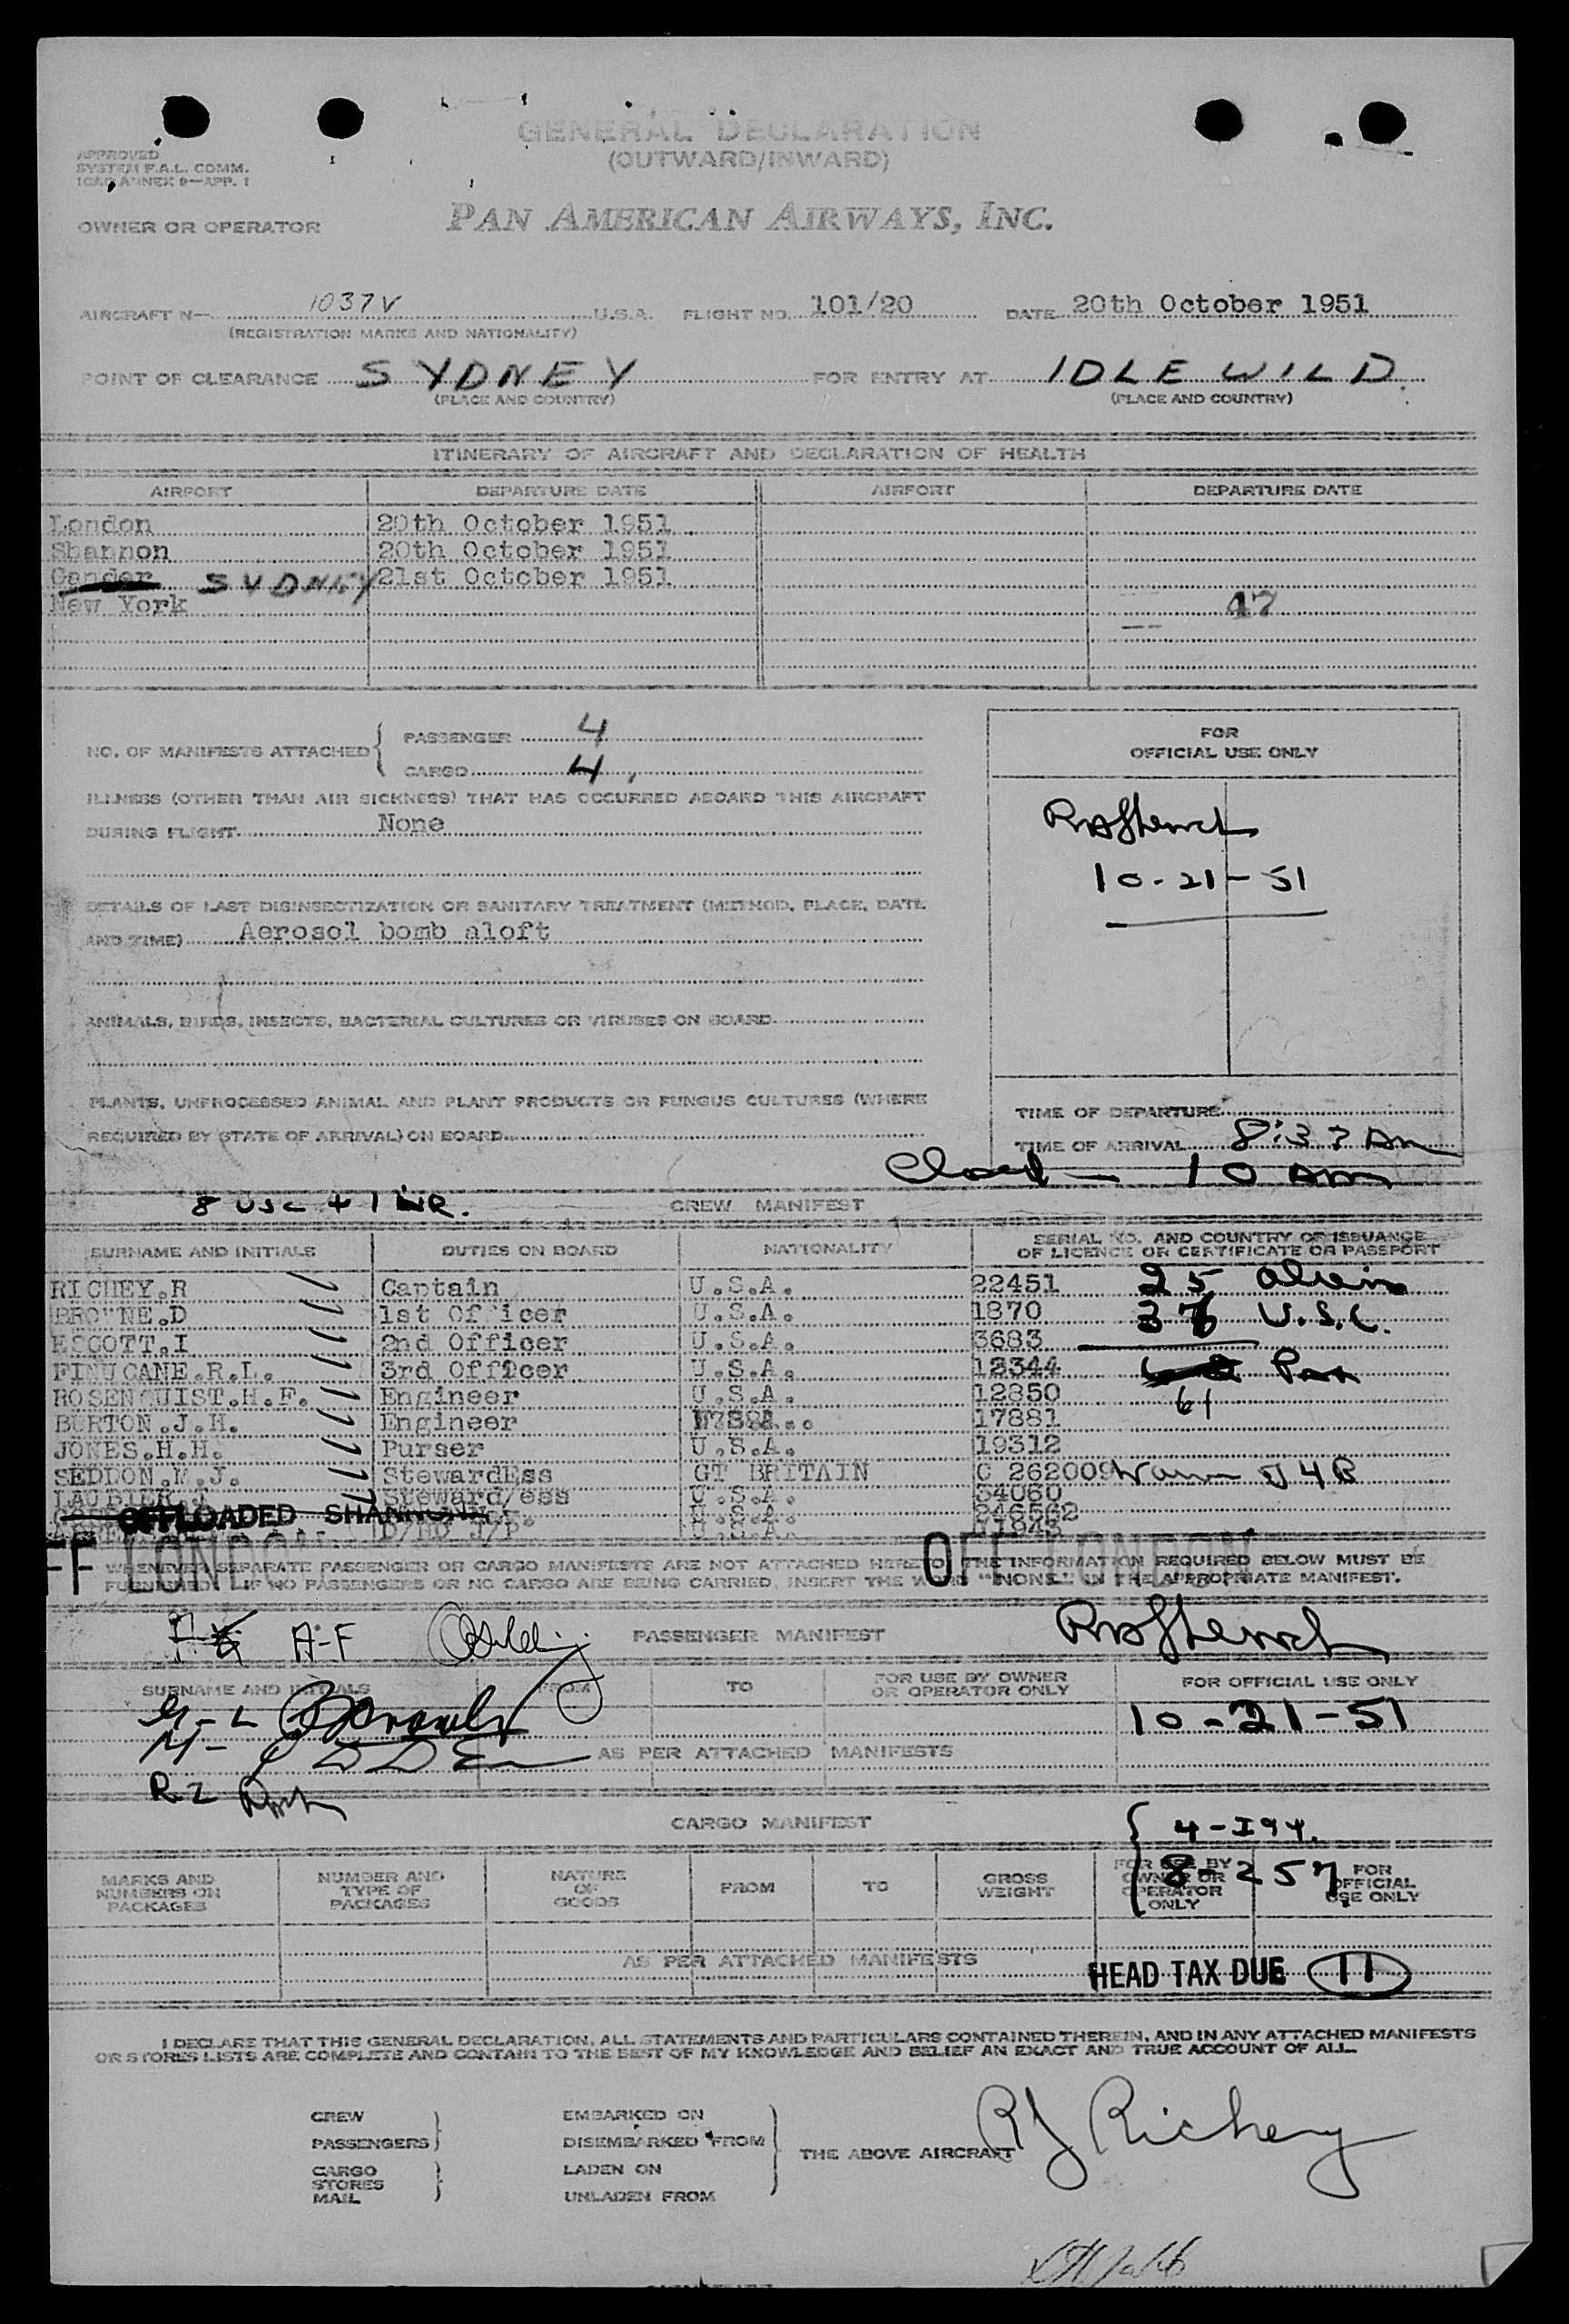 GENERAL DECLARATION
(OUTWARD/INWARD)
APPROVED
SYSTEM F.A.L. COMM.
ICAO ANNEX 9—APP. 1
OWNER OR OPERATOR PAN AMERICAN AIRWAYS, INC.
AIRCRAFT N— 1037V U.S.A. FLIGHT NO. 101/20 DATE 20th October 1951
(REGISTRATION MARKS AND NATIONALITY)
POINT OF CLEARANCE SYDNEY FOR ENTRY AT IDLEWILD.
(PLACE AND COUNTRY) (PLACE AND COUNTRY)
ITINERARY OF AIRCRAFT AND DECLARATION OF HEALTH
AIRPORT DEPARTURE DATE AIRPORT DEPARTURE DATE
London 20th October 1951
Shannon 20th October 1951
Gander SYDNEY 21st October 1951
New York 47
NO. OF MANIFESTS ATTACHED PASSENGER 4
CARGO 4
FOR
OFFICIAL USE ONLY
ILLNESS (OTHER THAN AIR SICKNESS) THAT HAS OCCURRED ABOARD THIS AIRCRAFT
DURING FLIGHT None
10-21-51
DETAILS OF LAST DISINSECTIZATION OR SANITARY TREATMENT (METHOD, PLACE, DATE
AND TIME) Aerosol bomb aloft
ANIMALS, BIRDS, INSECTS, BACTERIAL CULTURES OR VIRUSES ON BOARD
PLANTS, UNPROCESSED ANIMAL AND PLANT PRODUCTS OR FUNGUS CULTURES (WHERE
REQUIRED BY STATE OF ARRIVAL) ON BOARD
TIME OF DEPARTURE
TIME OF ARRIVAL 8:37 AM
Closed — 10 am
8 USC + 1 NR. CREW MANIFEST
SURNAME AND INITIALS DUTIES ON BOARD NATIONALITY SERIAL NO. AND COUNTRY OF ISSUANCE
OF LICENCE OR CERTIFICATE OR PASSPORT
RICHEY.R Captain U.S.A. 22451 25 Aliens
BROWNE.D 1st Officer U.S.A. 1870 36 U.S.C.
ESCOTT.I 2nd Officer U.S.A. 3683
FINUCANE.R.L. 3rd Officer U.S.A. 12344 Pax
ROSENQUIST.H.F. Engineer U.S.A. 12850 61
BURTON.J.H. Engineer 17881
JONES.H.H. Purser U.S.A. 19312
SEDDON.M.J. StewardEss GT BRITAIN C 262009
LAUBIER.J Steward/ess U.S.A. 54060
OFFLOADED SHANNON U.S.A. 246562
D/HD U.S.A.
OFF LONDON OFF LONDON
WHENEVER SEPARATE PASSENGER OR CARGO MANIFESTS ARE NOT ATTACHED HERETO, THE INFORMATION REQUIRED BELOW MUST BE
FURNISHED. IF NO PASSENGERS OR NO CARGO ARE BEING CARRIED, INSERT THE WORD "NONE" IN THE APPROPRIATE MANIFEST.
A-F PASSENGER MANIFEST
SURNAME AND INITIALS FROM TO FOR USE BY OWNER
OR OPERATOR ONLY FOR OFFICIAL USE ONLY
G-L 10-21-51
M- AS PER ATTACHED MANIFESTS
R Z
CARGO MANIFEST 4-I94.
8-257
MARKS AND
NUMBERS ON
PACKAGES
NUMBER AND
TYPE OF
PACKAGES
NATURE
OF
GOODS
FROM TO GROSS
WEIGHT
FOR USE BY
OWNER OR
OPERATOR
ONLY
FOR
OFFICIAL
USE ONLY
AS PER ATTACHED MANIFESTS
HEAD TAX DUE 11
I DECLARE THAT THIS GENERAL DECLARATION, ALL STATEMENTS AND PARTICULARS CONTAINED THEREIN, AND IN ANY ATTACHED MANIFESTS
OR STORES LISTS ARE COMPLETE AND CONTAIN TO THE BEST OF MY KNOWLEDGE AND BELIEF AN EXACT AND TRUE ACCOUNT OF ALL
CREW EMBARKED ON
PASSENGERS DISEMBARKED FROM
THE ABOVE AIRCRAFT RJ Richey
CARGO LADEN ON
STORES
MAIL UNLADEN FROM